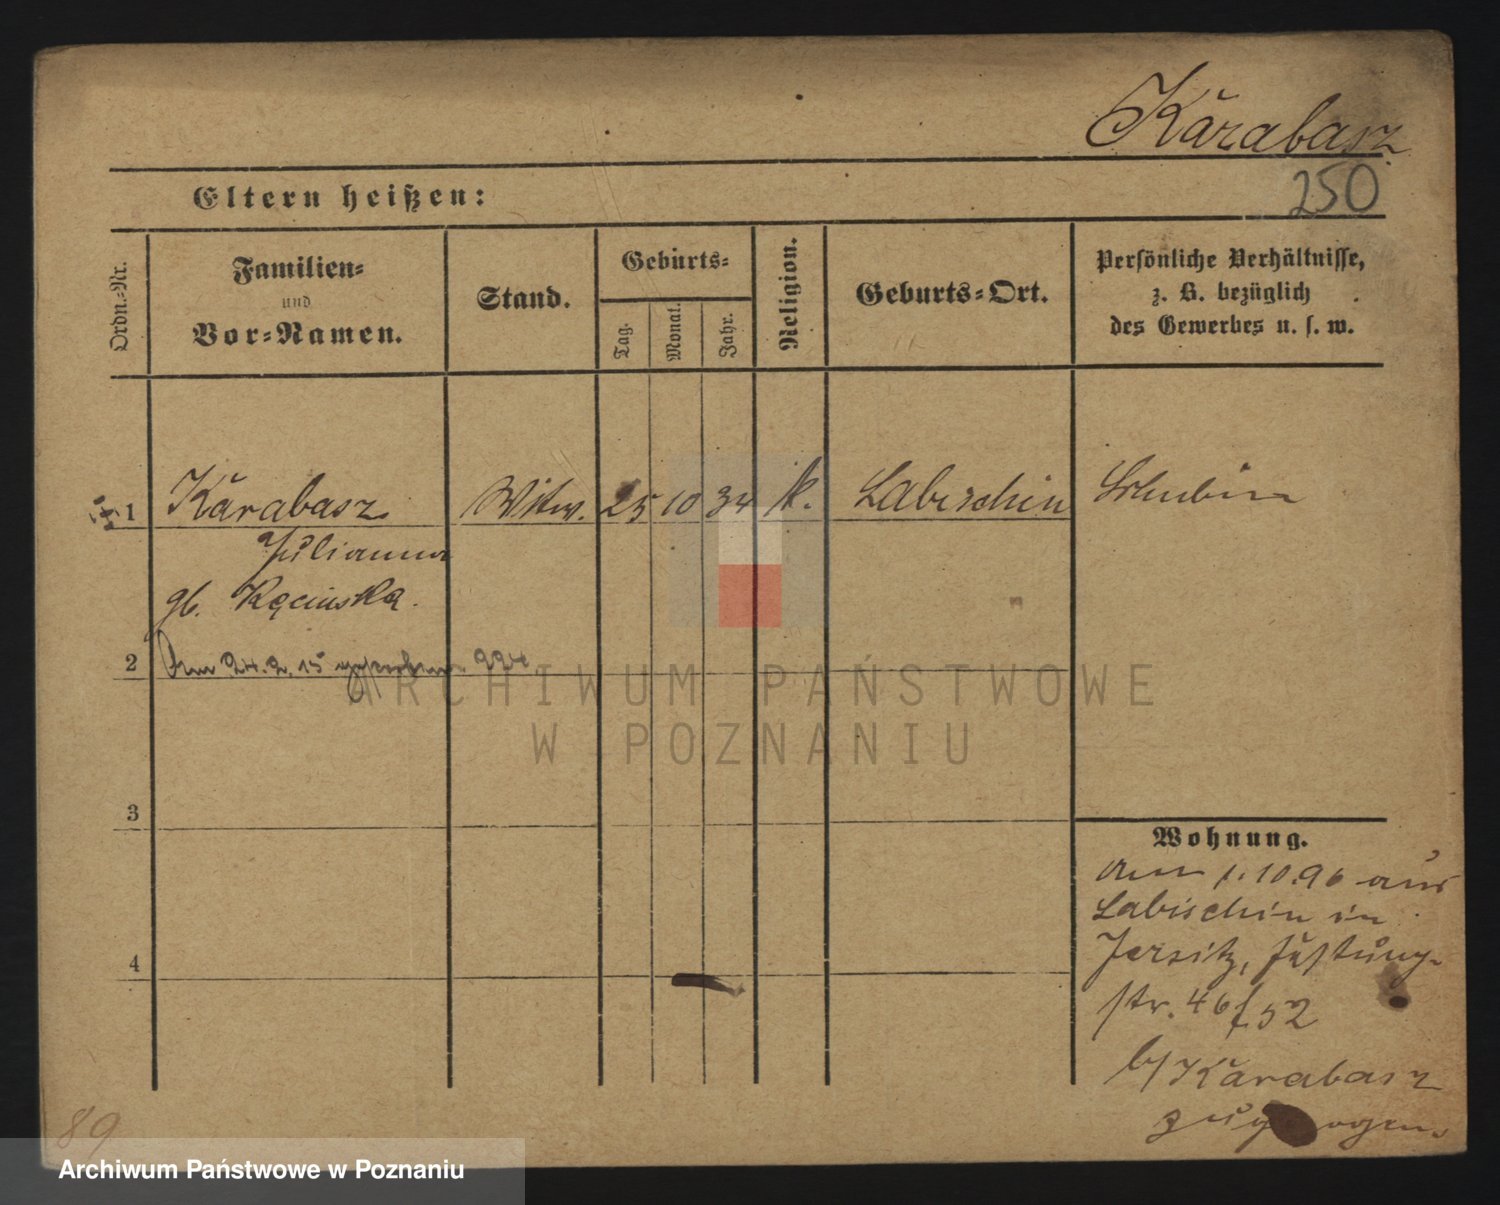 Kărabasz
250
Eltern heißen:
Ordn.=Nr.
Familien=
und
Vor=Namen.
Stand.
Geburts=
Tag.
Monat.
Jahr.
Religion.
Geburts=Ort.
Persönliche Verhältnisse,
z. B. bezüglich
des Gewerbes u. s. w.
1 Kărabasz Witw. 25 10 34 k. Labischin Schubin
Julianna
gb. Kęcińska.
2 Am 24.2.15 994
3
4
Wohnung.
Am 1.10.96 aus
Labischin in
Jersitz,
str. 46/52
b/ Kărabasz
zugezogen.
89
ARCHIWUM PAŃSTWOWE
W POZNANIU
Archiwum Państwowe w Poznaniu